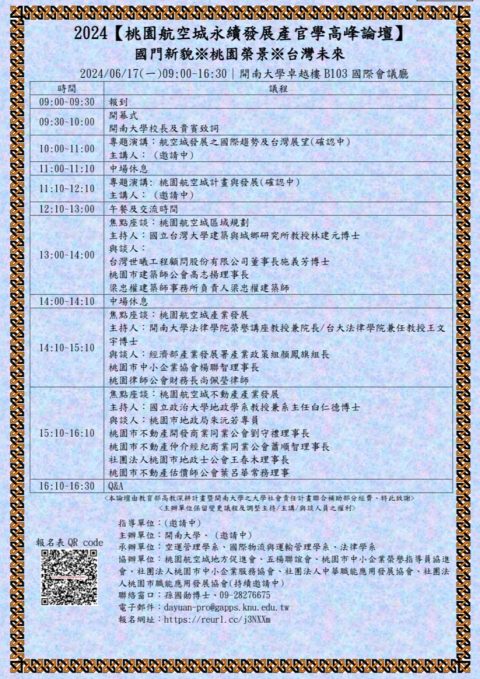 2024【桃園航空城永續發展產官學高峰論壇】
國門新貌※桃園榮景※台灣未來
2024/06/17(一)09:00-16:30｜開南大學卓越樓 B103 國際會議廳
時間 議程
09:00-09:30 報到
09:30-10:00 開幕式
開南大學校長及貴賓致詞
10:00-11:00 專題演講：航空城發展之國際趨勢及台灣展望(確認中)
主講人：（邀請中）
11:00-11:10 中場休息
11:10-12:10 專題演講：桃園航空城計畫與發展(確認中)
主講人：（邀請中）
12:10-13:00 午餐及交流時間
13:00-14:00 焦點座談：桃園航空城區域規劃
主持人：國立台灣大學建築與城鄉研究所教授林建元博士
與談人：
台灣世曦工程顧問股份有限公司董事長施義芳博士
桃園市建築師公會高志揚理事長
梁忠權建築師事務所負責人梁忠權建築師
14:00-14:10 中場休息
14:10-15:10 焦點座談：桃園航空城產業發展
主持人：開南大學法律學院榮譽講座教授兼院長/台大法律學院兼任教授王文
宇博士
與談人：經濟部產業發展署產業政策組顏鳳旗組長
桃園市中小企業協會楊聯智理事長
桃園律師公會財務長尚佩瑩律師
15:10-16:10 焦點座談：桃園航空城不動產產業發展
主持人：國立政治大學地政學系教授兼系主任白仁德博士
與談人：桃園市地政局朱沅若專員
桃園市不動產開發商業同業公會劉守禮理事長
桃園市不動產仲介經紀商業同業公會蕭順智理事長
社團法人桃園市地政士公會王春木理事長
桃園市不動產估價師公會葉呂華常務理事
16:10-16:30 Q&A
(本論壇由教育部高教深耕計畫暨開南大學之大學社會責任計畫聯合補助部分經費、特此致謝)
(主辦單位保留變更議程及調整主持/主講/與談人員之權利)
指導單位：(邀請中)
主辦單位：開南大學、(邀請中)
承辦單位：空運管理學系、國際物流與運輸管理學系、法律學系
協辦單位：桃園航空城地方促進會、五楊聯誼會、桃園市中小企業榮譽指導員協進
會、社團法人桃園市中小企業服務協會、社團法人中華職能應用發展協會、社團法
人桃園市職能應用發展協會(持續邀請中)
聯絡窗口：孫國勛博士、09-28276675
電子郵件：dayuan-pro@gapps.knu.edu.tw
報名網址：https://reurl.cc/j3NXXm
報名表 QR code